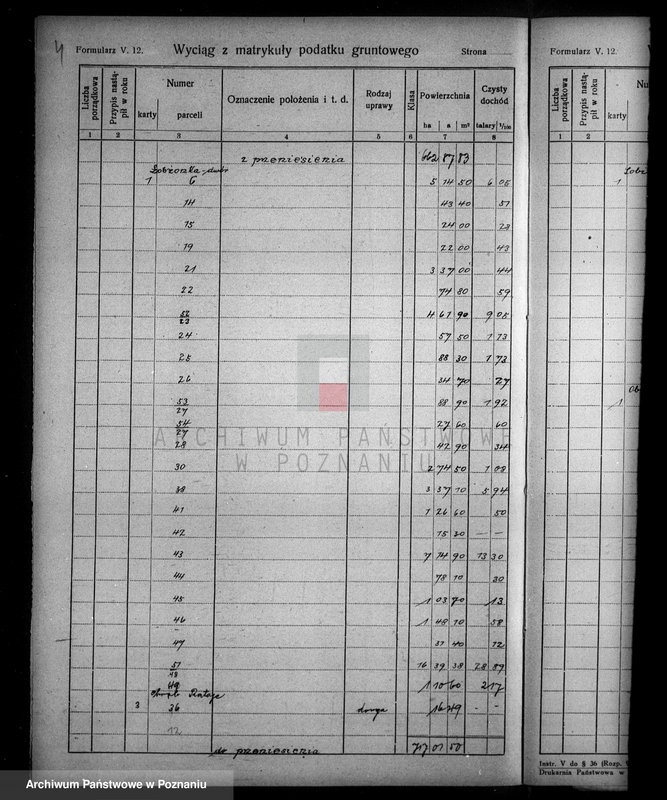 4
Formularz V. 12. Wyciąg z matrykuły podatku gruntowego Strona
Liczba porządkowa Przypis nastąpił w roku Numer karty parceli Oznaczenie położenia i t. d. Rodzaj uprawy Klasa Powierzchnia ha a m² Czysty dochód talary 1/100
1 2 3 4 5 6 7 8
z przeniesienia 662 87 83
Łobżonka-dwór
1 6 5 14 50 6 05
14 43 40 51
15 24 00 23
19 22 00 43
21 3 37 00 44
22 74 80 59
52/23 4 61 90 9 05
24 57 50 1 13
25 88 30 1 73
26 34 70 27
53/27 88 90 1 92
54/27 27 60 60
28 42 90 34
30 2 74 50 1 08
38 3 37 10 5 94
41 1 26 60 50
42 15 30 — —
43 7 74 90 13 30
44 78 10 30
45 1 03 70 13
46 1 48 10 58
47 31 40 12
51/48 16 39 38 28 89
49 1 10 60 217
Rataje
3 36 droga 16 49 - -
12
do przeniesienia 717 01 50
Formularz V. 12.
Liczba porządkowa Przypis nastąpił w roku karty
1 2
1
1
Instr. V do § 36 (Rozp.
Drukarnia Państwowa w
ARCHIWUM PAŃSTWOWE
W POZNANIU
Archiwum Państwowe w Poznaniu